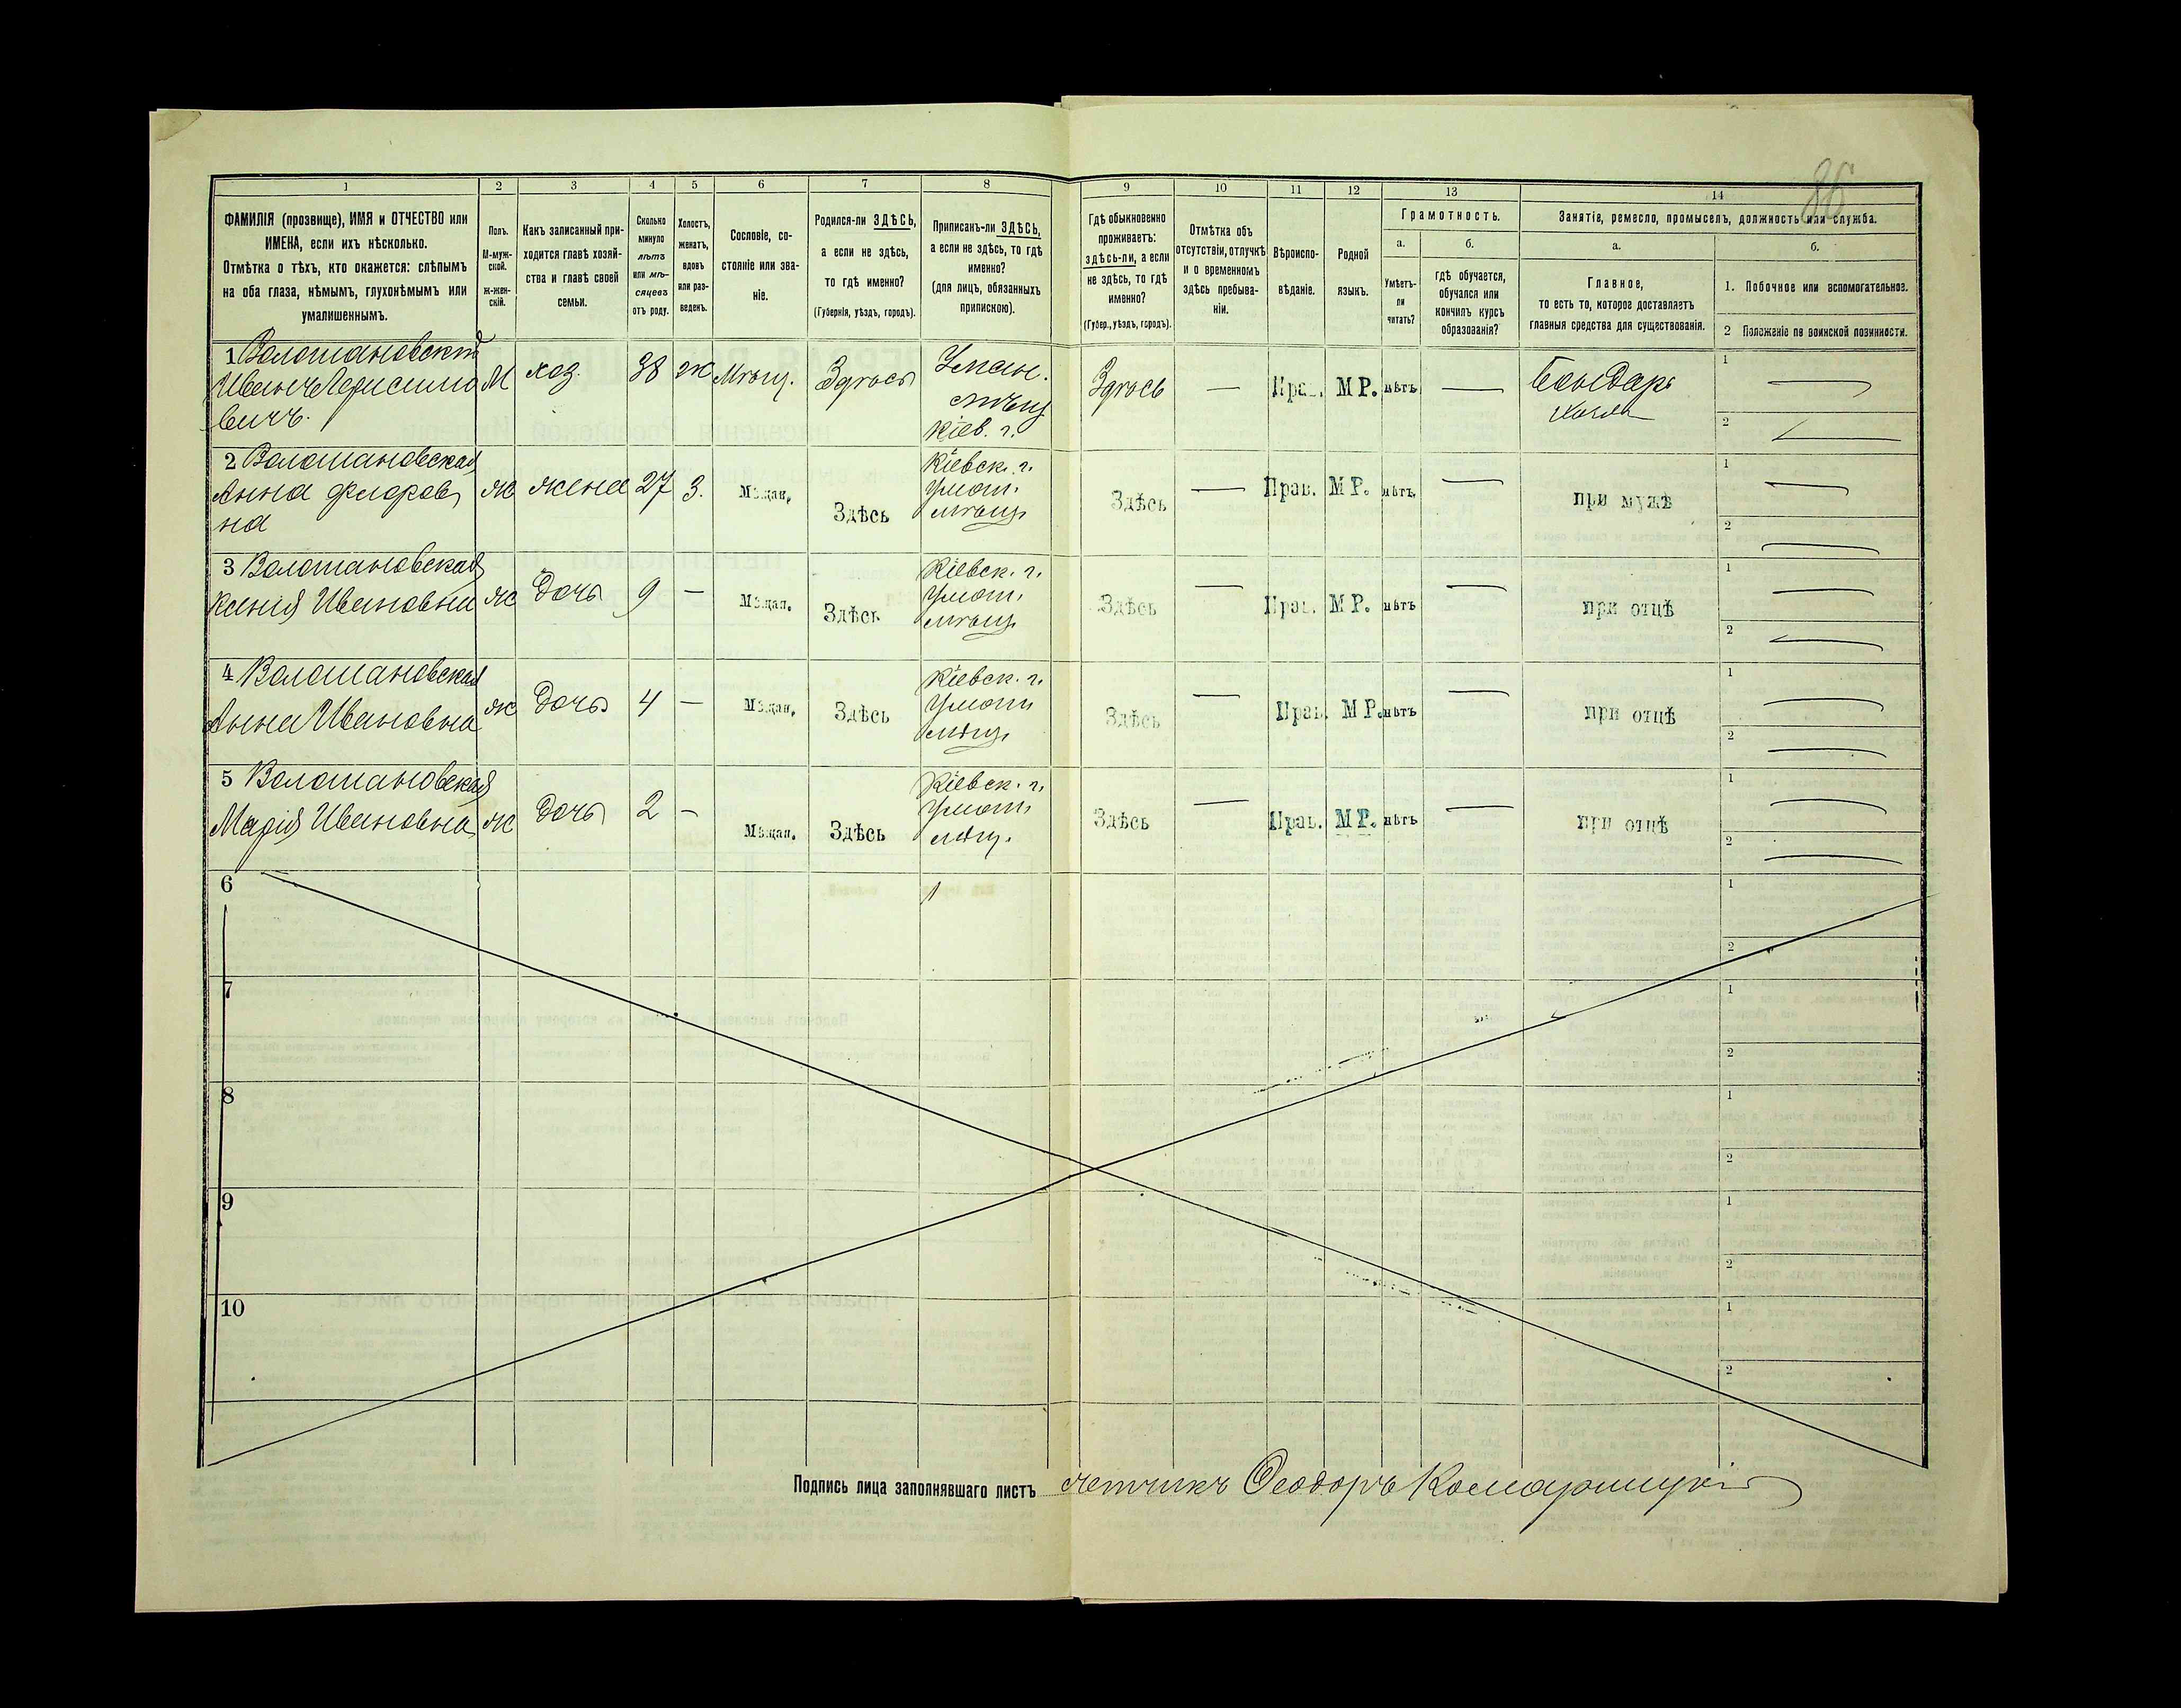 86
1 2 3 4 5 6 7 8 9 10 11 12 13 14
ФАМИЛІЯ (прозвище), ИМЯ и ОТЧЕСТВО или
ИМЕНА, если ихъ нѣсколько.
Отмѣтка о тѣхъ, кто окажется: слѣпымъ
на оба глаза, нѣмымъ, глухонѣмымъ или
умалишеннымъ.
Полъ.
М-муж-
ской.
Ж-жен-
скій.
Какъ записанный при-
ходится главѣ хозяй-
ства и главѣ своей
семьи.
Сколько
минуло
лѣтъ
или мѣ-
сяцевъ
отъ роду.
Холостъ,
женатъ,
вдовъ
или раз-
веденъ.
Сословіе, со-
стояніе или зва-
ніе.
Родился-ли ЗДѢСЬ,
а если не здѣсь,
то гдѣ именно?
(Губернія, уѣздъ, городъ).
Приписанъ-ли ЗДѢСЬ,
а если не здѣсь, то гдѣ
именно?
(для лицъ, обязанныхъ
припискою).
Гдѣ обыкновенно
проживаетъ:
здѣсь-ли, а если
не здѣсь, то гдѣ
именно?
(Губер., уѣздъ, городъ).
Отмѣтка объ
отсутствіи, отлучкѣ
и о временномъ
здѣсь пребыва-
ніи.
Вѣроиспо-
вѣданіе.
Родной
языкъ.
Грамотность.
а.
Умѣетъ-
ли
читать?
б.
гдѣ обучается,
обучался или
кончилъ курсъ
образованія?
Занятіе, ремесло, промыселъ, должность или служба.
а.
Главное,
то есть то, которое доставляетъ
главныя средства для существованія.
б.
1. Побочное или вспомогательное.
2 Положеніе по воинской повинности.
1 Волошановскій
Иванъ
вичъ.
М хоз. 38 ж Мѣщ. Здѣсь
Уман.
мѣщ
Кіев. г.
Здѣсь — Прав. МР. нѣтъ —
Бондарь
1
2
2 Волошановская
Анна Флоров
на
ж жена 27 З. Мѣщан. Здѣсь
Кіевск. г.
Уман.
мѣщ.
Здѣсь — Прав. МР. нѣтъ — при мужѣ
1
2
3 Волошановская
Ксенія Ивановна
ж дочь 9 — Мѣщан. Здѣсь
Кіевск. г.
Уман.
мѣщ.
Здѣсь — Прав. МР. нѣтъ — при отцѣ
1
2
4 Волошановская
Анна Ивановна
ж дочь 4 — Мѣщан. Здѣсь
Кіевск. г.
Уман.
мѣщ.
Здѣсь — Прав. МР. нѣтъ — при отцѣ
1
2
5 Волошановская
Марія Ивановна
ж дочь 2 — Мѣщан. Здѣсь
Кіевск. г.
Уман.
мѣщ.
Здѣсь — Прав. МР. нѣтъ — при отцѣ
1
2
6 1
2
7 1
2
8 1
2
9 1
2
10 1
2
Подпись лица заполнявшаго листъ Счетчикъ Ѳеодоръ Комарницкій